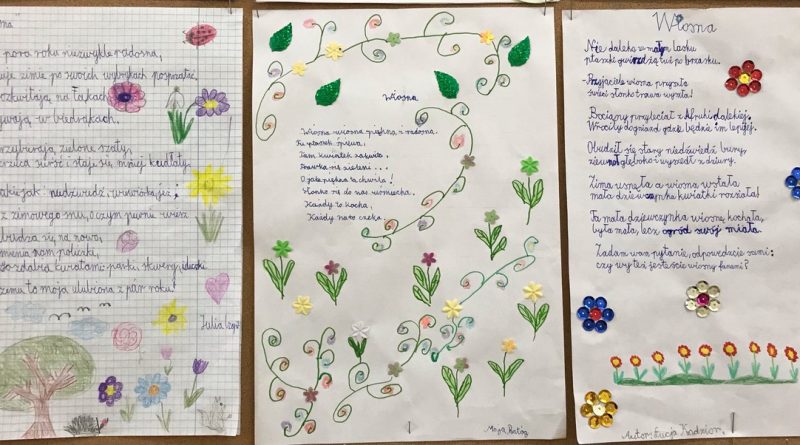 pora roku niezwykle radosna,
zimie po swoich wybrykach posprzątać,
na łąkach
w biedrakach.
zielone szaty,
sierść i staje się mniej
jak: niedźwiedź, wiewiórka, jeż;
z zimowego snu, o czym pewnie wiesz
się na nowo,
nam policzki,
kwiatami parki, skwery,
to moja ulubiona z pór roku!
Julia
Wiosna
Wiosna wiosna piękna i radosna.
Tu ptaszek śpiewa,
Tam kwiatek zakwita.
Trawka się zieleni...
O jaka piękna ta chwila!
Słonko się do nas uśmiecha.
Każdy to kocha,
Każdy na to czeka.
Maja
Wiosna
Nie daleko w małym lasku
ptaszki gwiżdżą tuż po brzasku.
- Przyjaciele wiosna przyszła
świeci słonko trawa wyszła!
Bociany przyleciały z Afryki dalekiej.
Wróciły do gniazd gdzie będzie im lepiej.
Obudził się stary niedźwiedź bury,
ziewnął głęboko i wyszedł z dziury.
Zima usnęła a wiosna wstała
mała dziewczynka kwiatki rozsiała!
Ta mała dziewczynka wiosnę kochała,
była mała, lecz ogród swój miała.
Zadam wam pytanie, odpowiedzcie sami:
czy wy też jesteście wiosny fanami?
Autor: Łucja